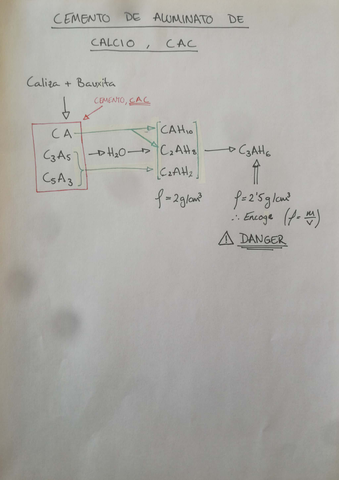 CEMENTO DE ALUMINATO DE
CALCIO, CAC
Caliza + Bauxita
CEMENTO, CAC
CA
C₃A₅
C₅A₃
H₂O
CAH₁₀
C₂AH₈
C₂AH₂
C₃AH₆
ρ = 2g/cm³
ρ = 2'5g/cm³
∴ Encoge (ρ = m/V)
! DANGER